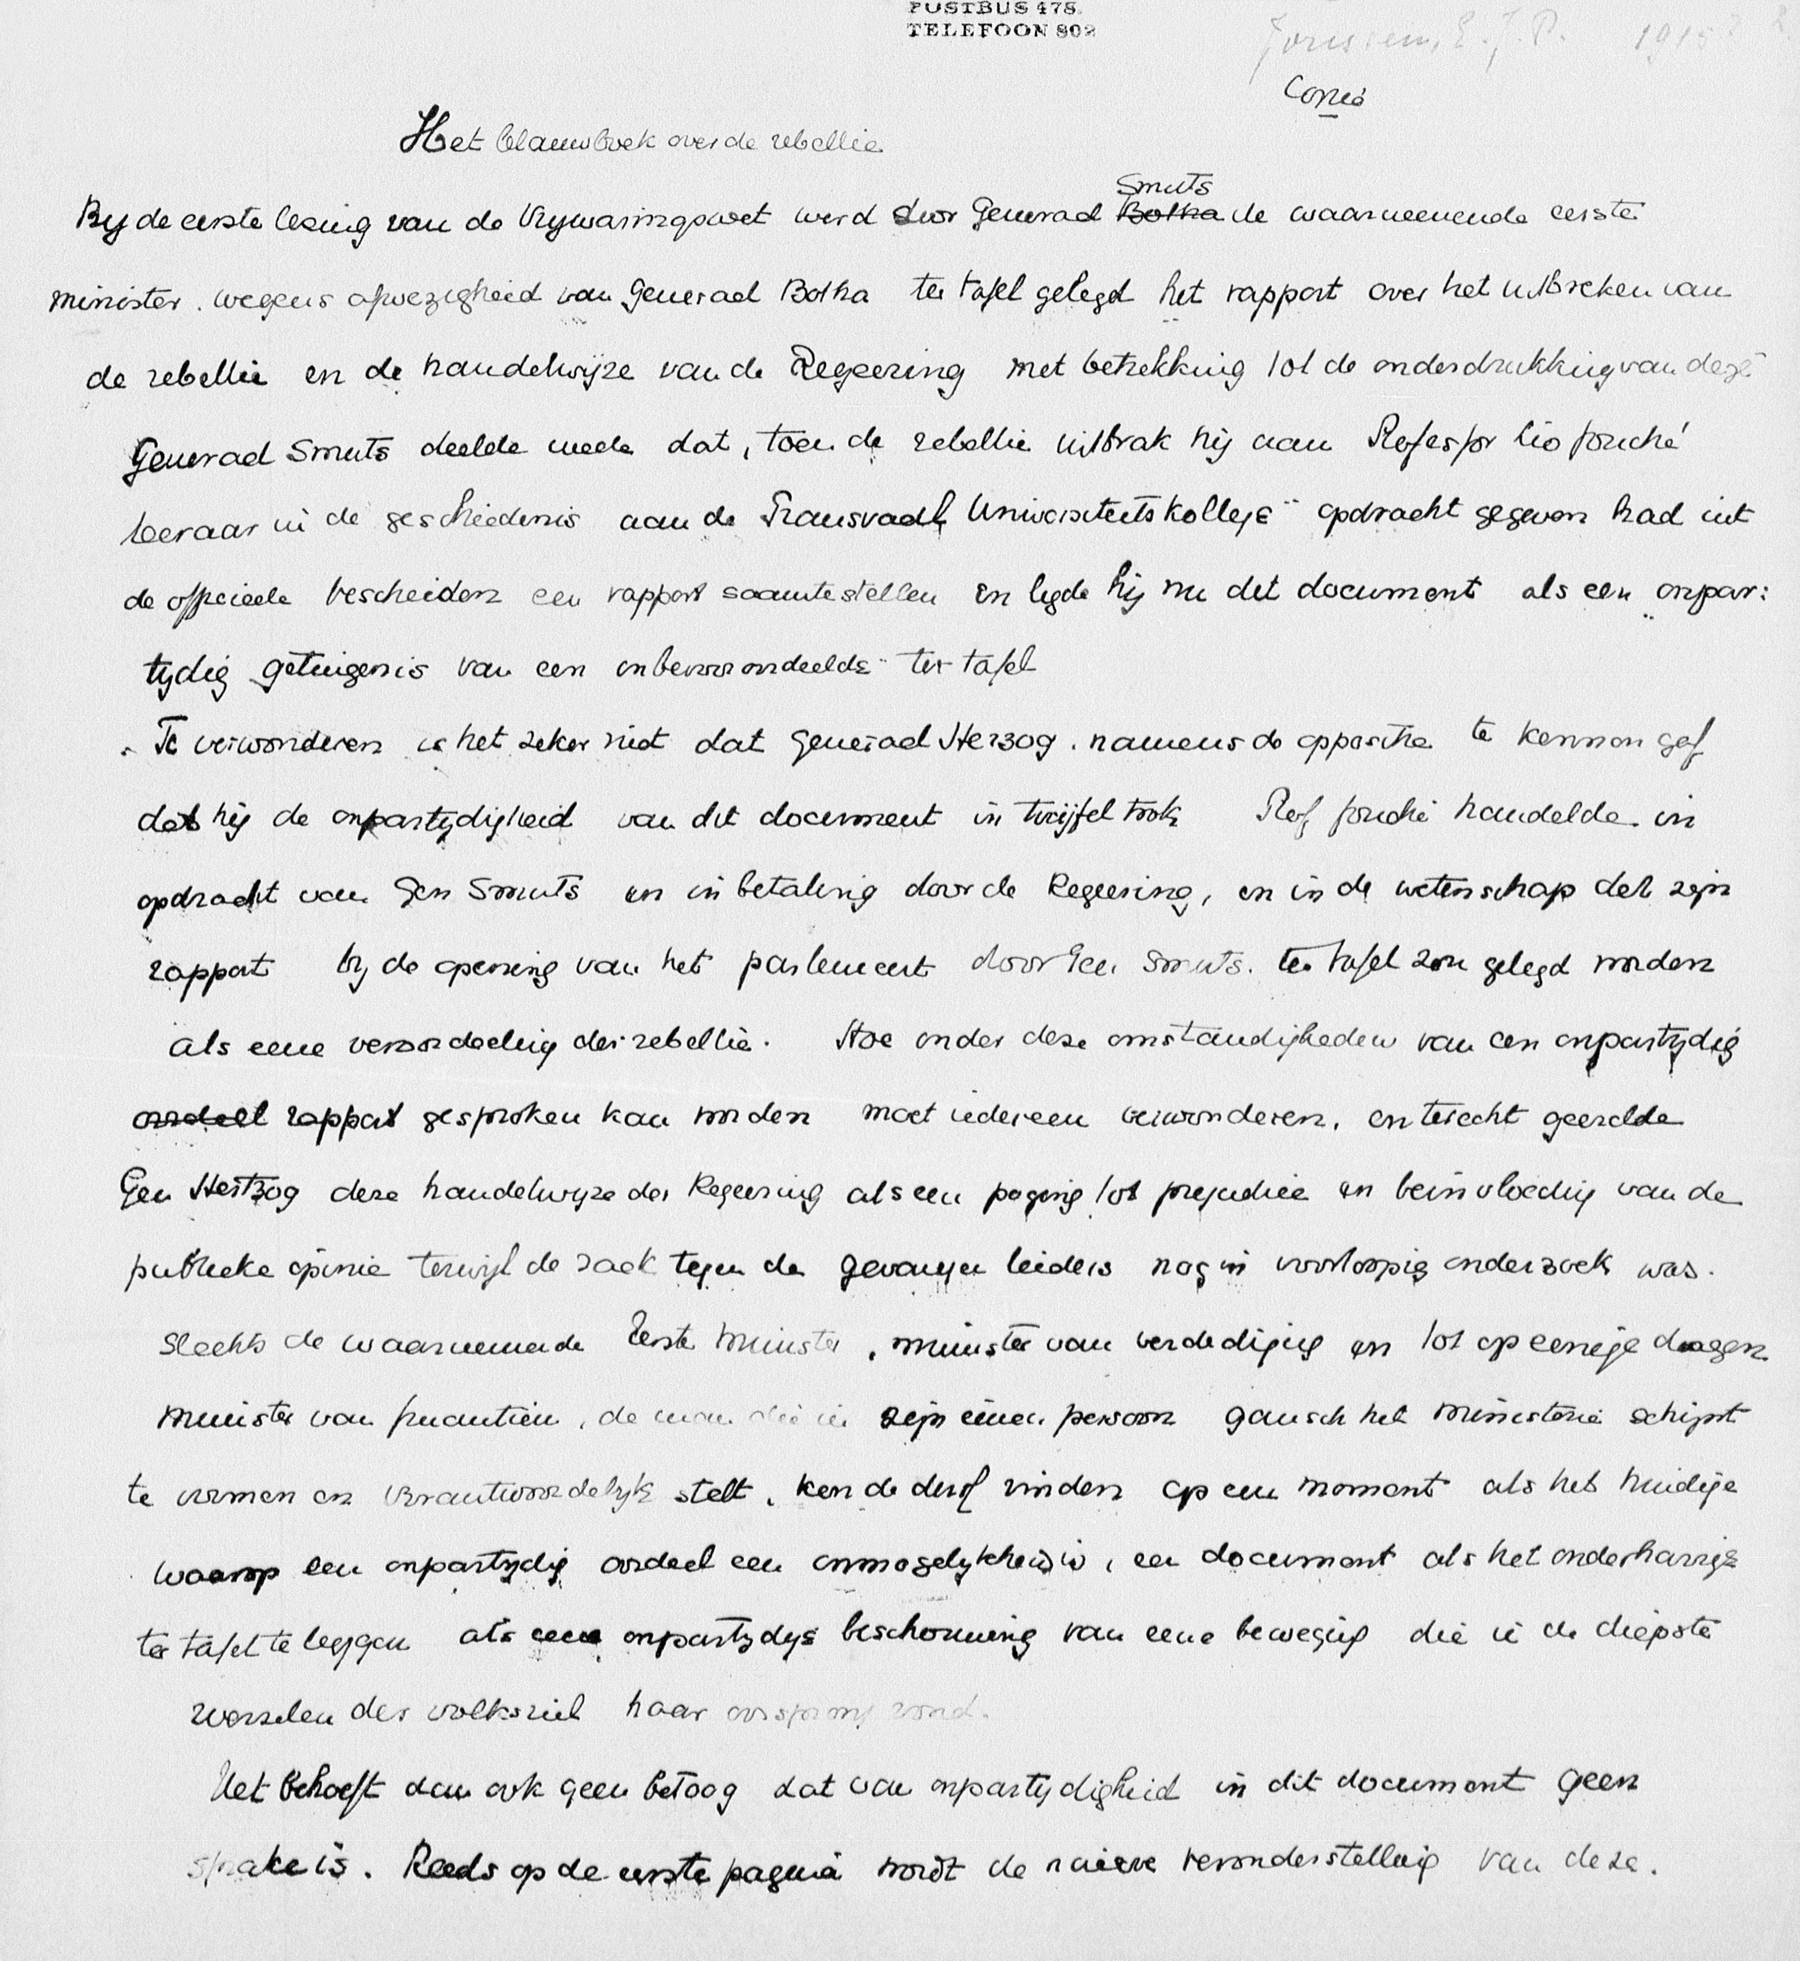 POSTBUS 478.
TELEFOON 802
Jorissen, E. J. P. 1915
Copie
Het blauwboek over de rebellie
Smuts
By de eerste lezing van de Vrywaringswet werd door Generaal Botha de waarnemende eerste
minister. wegens afwezigheid van Generaal Botha ter tafel gelegd het rapport over het uitbreken van
de rebellie en de handelwijze van de Regeering met betrekking tot de onderdrukking van deze
Generaal Smuts deelde mede dat, toen de rebellie uitbrak hij aan Professor Leo fouché
leeraar in de geschiedenis aan de Transvaal Universiteitskollege opdracht gegeven had uit
de officieele bescheiden een rapport saamtestellen en legde hij nu dit document als een onpar:
tydig getuigenis van een onbevooroordeelde ter tafel
Te verwonderen is het zeker niet dat generaal Herzog. namens de oppositie te kennen gaf
dat hij de onpartydigheid van dit document in twijfel trok Prof fouché handelde in
opdracht van Gen Smuts en in betaling door de Regeering, en in de wetenschap dat zijn
rapport by de opening van het parlement door Gen Smuts. ter tafel zou gelegd worden
als eene veroordeeling der rebellie. Hoe onder deze omstandigheden van een onpartydig
oordeel rapport gesproken kan worden moet iedereen verwonderen, en terecht geeselde
Gen Hertzog deze handelwyze der Regeering als een poging tot prejudice en beinvloeding van de
publieke opinie terwyl de zaak tegen de gevangen leiders nog in voorloopig onderzoek was.
Slechts de waarnemende Eerste Minister, minister van verdediging en tot op eenige dagen
minister van finantien, de man die in zijn eigen persoon gansch het ministerie schijnt
te vormen en verantwoordelyk stelt, kon de durf vinden op een moment als het huidige
waarop een onpartydig oordeel een onmogelykheid is, een document als het onderhavige
ter tafel te leggen als eene onpartydige beschouwing van eene beweging die in de diepste
wortelen der volksziel haar oorsprong vond.
Het behoeft dan ook geen betoog dat van onpartydigheid in dit document geen
sprake is. Reeds op de eerste pagina wordt de naieve veronderstelling van deze.